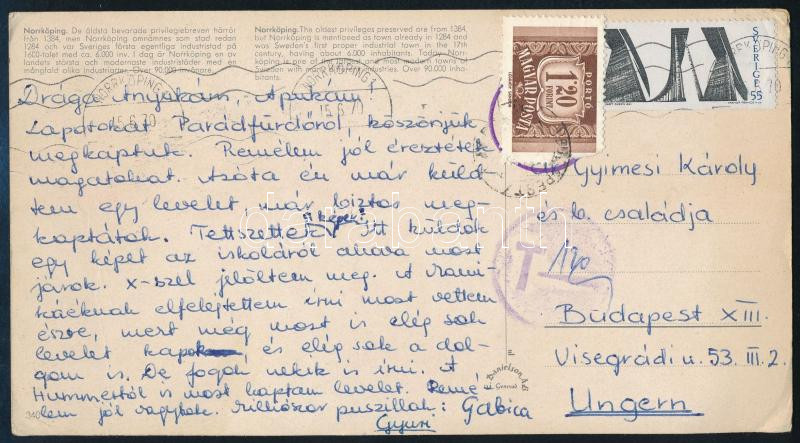 Norrköping. De äldsta bevarade privilegiebreven härrör
från 1384, men Norrköping omnämnes som stad redan
1284 och var Sveriges första egentliga industristad på
1600-talet med ca. 6.000 inv. I dag är Norrköping en av
landets största och modernaste industristäder med en
mångfald olika industriarter. Över 90.000 invånare.
Norrköping. The oldest privileges preserved are from 1384,
but Norrköping is mentioned as town already in 1284 and
was Sweden's first proper industrial town in the 17th
century, having about 6.000 inhabitants. Today Norr-
köping is one of the largest and most modern towns of
Sweden with many industries. Over 90.000 inha-
bitants.
NORRKÖPING 1
15.6.70
NORRKÖPING 1
15.6.70
PORTO
1'20
FORINT
MAGYAR POSTA
SVERIGE
55
Drága Anyukám, Apukám!
Lapotokat Parádfürdőről, köszönjük
megkaptuk. Remélem jól éreztétek
magatokat. Azóta én már küld
tem egy levelet, már biztos meg-
kaptátok. Tettszettek a képek? Itt küldök
egy képet az iskoláról ahova most
járok. X-szel jelöltem meg. A Mami-
káéknak elfelejtettem írni most vettem
észre, mert még most is elég sok
levelet kapok, és elég sok a dol-
gom is. De fogok nekik is írni. A
Hummertól is most kaptam levelet. Remé-
lem jól vagytok. Milliószor puszillak: Gabica
Gyuri
Gyimesi Károly
és b. családja
T
120
Budapest XIII.
Visegrádi u. 53. III. 2.
Ungern
Danielson
340
darabanth